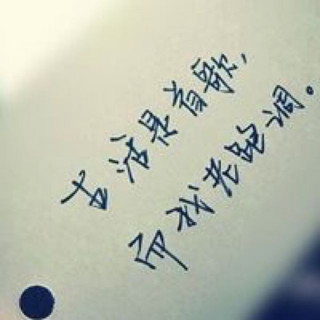 生活是首歌,
而我老跑调。